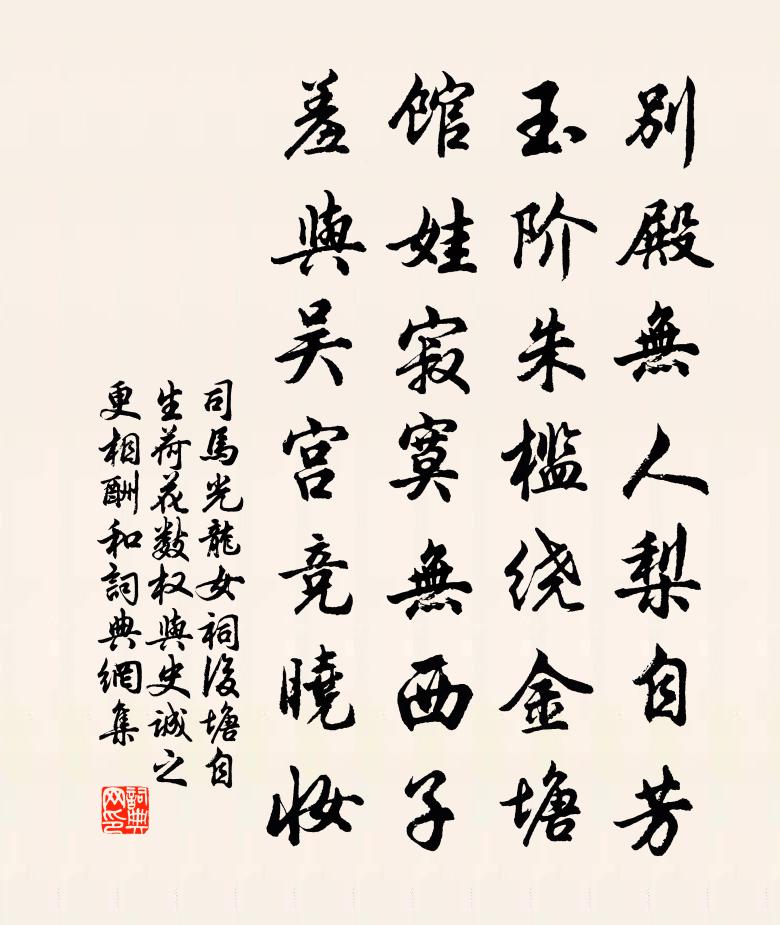 別殿無人梨自芳
玉阶朱檻绕金塘
馆娃寂寞無西子
羞與吴宫竞曉妆
司馬光龍女祠後塘自
生荷花数权與史誠之
更相酬和詞典網集
詞典
网印